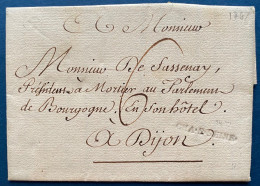 A Monsieur
Monsieur De Sassenay,
Président a Mortier au Parlement
de Bourgogne, En son hôtel
A Dijon